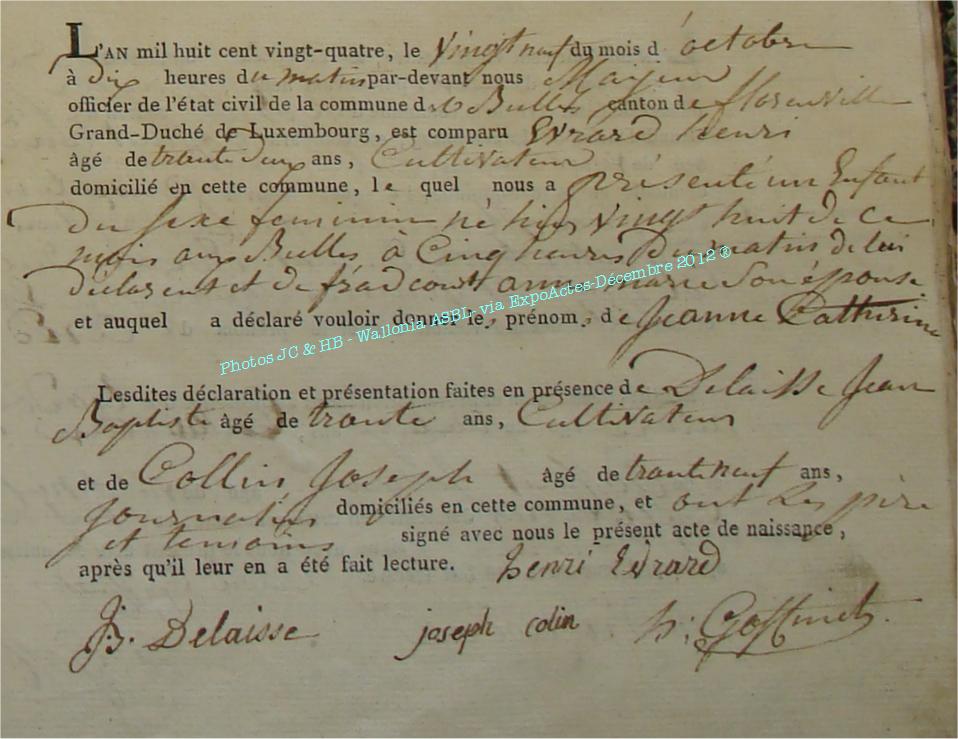 L'AN mil huit cent vingt-quatre, le vingt neuf du mois d'octobre
à dix heures du matin par-devant nous Mayeur
officier de l'état civil de la commune des Bulles canton de florenville
Grand-Duché de Luxembourg, est comparu Evrard henri
âgé de trante deux ans, Cultivateur
domicilié en cette commune, le quel nous a présenté un Enfant
du sexe feminin né hier vingt huit de ce
mois aux Bulles à Cinq heures du matin de lui
déclarent et de fradcourt anne marie son épouse
et auquel a déclaré vouloir donner les prénoms de Jeanne Catherine
Photos JC & HB - Wallonia ASBL- via ExpoActes-Décembre 2012 ®
Lesdites déclaration et présentation faites en présence de Delaisse Jean
Baptiste âgé de trante ans, Cultivateur
et de Collin Joseph âgé de trant neuf ans,
Journalier domiciliés en cette commune, et ont Les père
et temoins signé avec nous le présent acte de naissance,
après qu'il leur en a été fait lecture. henri Evrard
JB. Delaisse joseph colin h: Goffinet